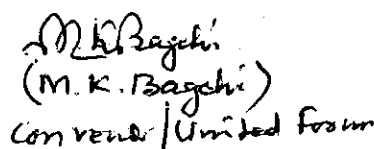 M.K.Bagchi
(M. K. Bagchi)
Convenor/United Forum